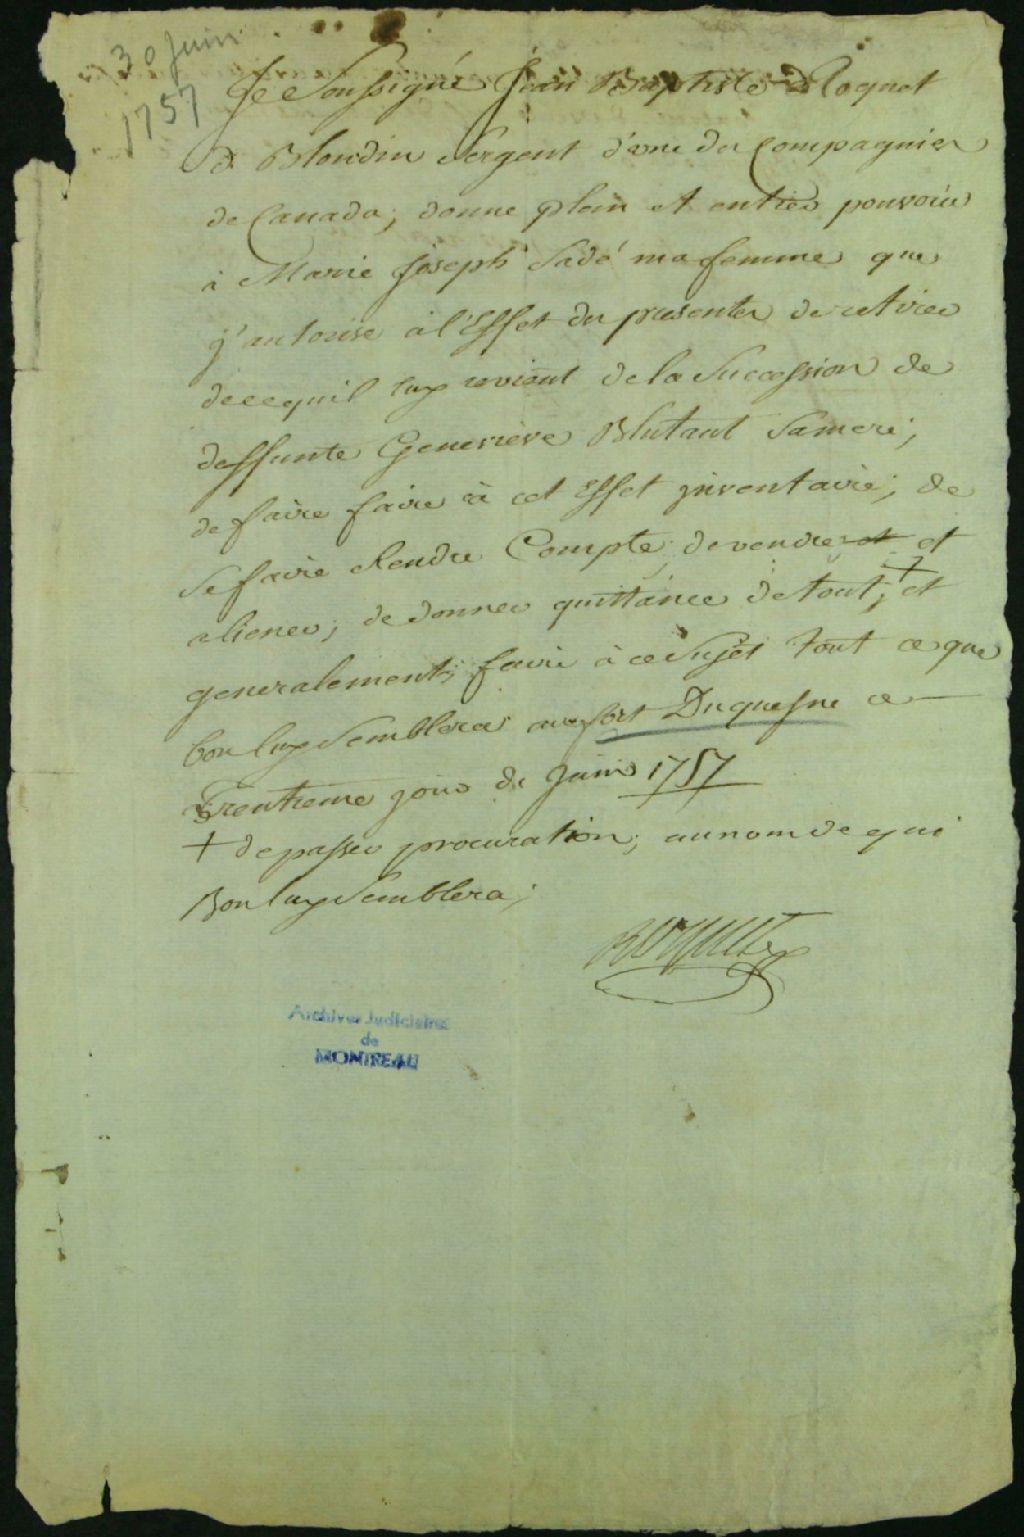 30 Juin
1757
Je Soussigné Jean Baptiste Roquet
d. Blondin Sergent d'une des Compagnies
de Canada; donne plein et entier pouvoir
à Marie Joseph Sadé ma femme que
j'autorise à l'Effet des presentes de retirer
de ce quil luy revient de la Succession de
deffunte Genevieve Blutant Sa mere;
de faire faire à cet Effet jnventaire; de
Se faire Rendre Compte; de vendre et et
aliener; de donner quittance de tout; + et
generalement faire à ce Sujet tout ce que
bon luy Semblera au fort Duquesne ce
Trentieme jour de Juin 1757
+ de passer procuration; au nom de qui
Bon luy Semblera;
Roquette
Archives Judiciaires
de
MONTREAL